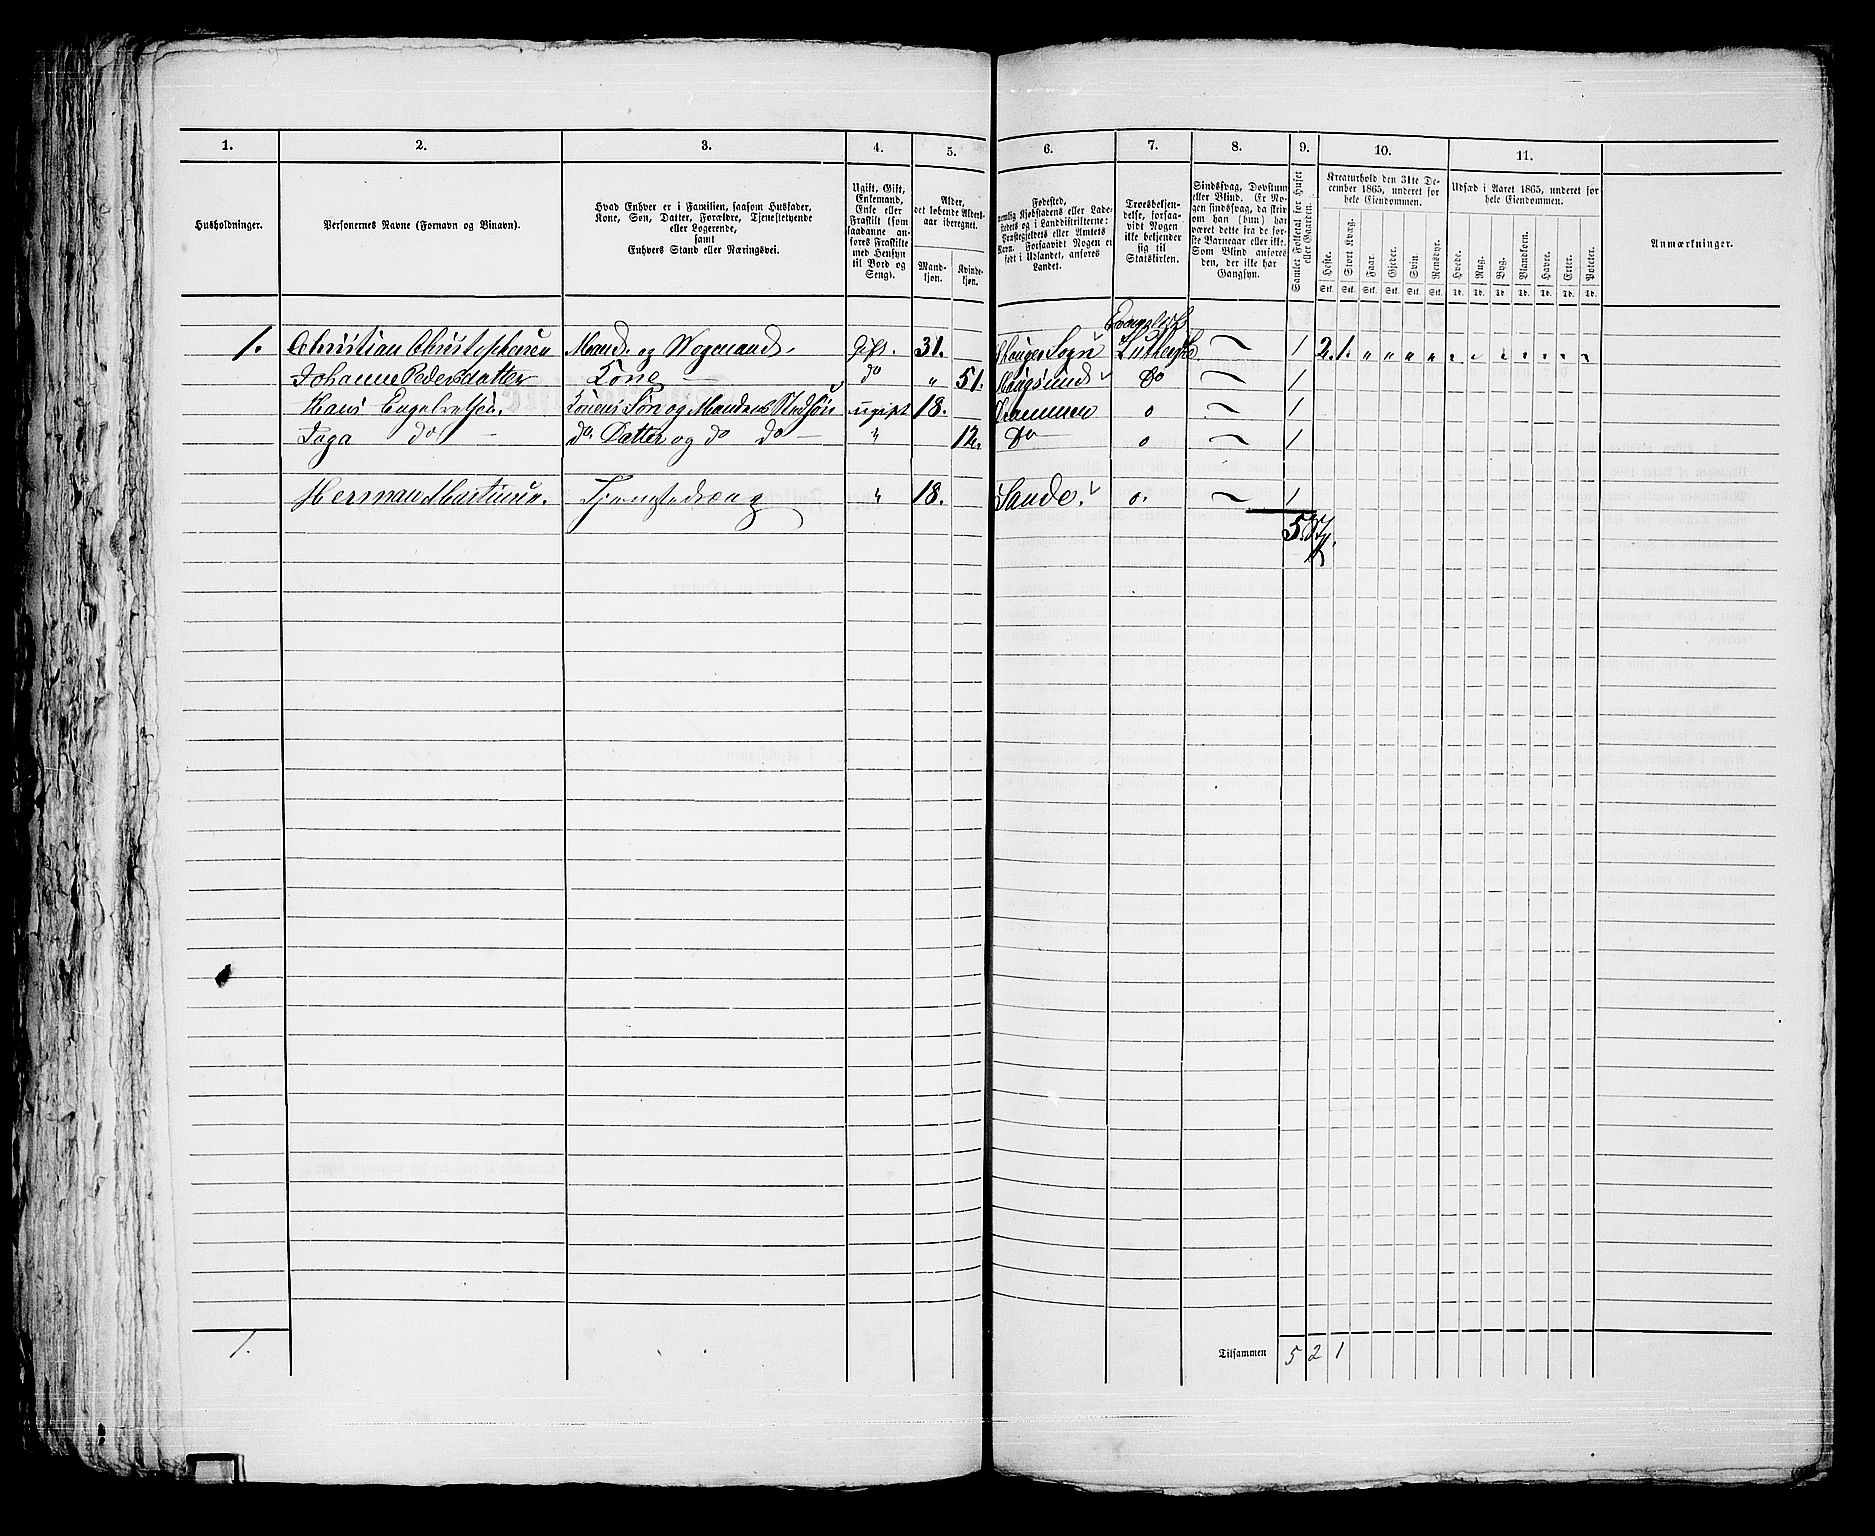 1. 2. 3. 4. 5. 6. 7. 8. 9. 10. 11.
Husholdninger.
Personernes Navne (Fornavn og Binavn).
Hvad Enhver er i Familien, saasom Husfader,
Kone, Søn, Datter, Forældre, Tjenestetyende
eller Logerende,
samt
Enhvers Stand eller Næringsvei.
Ugift, Gift,
Enkemand,
Enke eller
Fraskilt (som
saadanne an-
føres Fraskilte
med Hensyn
til Bord og
Seng).
Alder,
det løbende Alders-
aar iberegnet.
Mand-
kjøn.
Kvinde-
kjøn.
Fødested,
nemlig Kjøbstadens eller Lade-
stedets og i Landdistrikterne:
Præstegjeldets eller Amtets
Navn. Forsaavidt Nogen er
født i Udlandet, anføres
Landet.
Troesbekjen-
delse, forsaa-
vidt Nogen
ikke bekjender
sig til
Statskirken.
Sindssvag, Døvstum
eller Blind. Er No-
gen sindssvag, da skriv
om han (hun) har
været dette fra de før-
ste Barneaar eller ikke.
Som Blind anføres
den, der ikke har
Gangsyn.
Samlet Folketal for Huset
eller Gaarden.
Kreaturhold den 31te De-
cember 1865, underet for
hele Eiendommen.
Heste. Stort Kvæg. Faar. Gjeder. Svin. Rensdyr.
Stk. Stk. Stk. Stk. Stk. Stk.
Udsæd i Aaret 1865, underet for
hele Eiendommen.
Hvede. Rug. Byg. Blandkorn. Havre. Erter. Poteter.
Td. Td. Td. Td. Td. Td. Td.
Anmærkninger.
Evangelisk
1. Christian Christophersen Mand og Vogmand. Gift. 31. Sogn Luthersk 1 2. 1. " " " "
Johanne Pedersdatter Kone — do " 51. Do 1
Hans Engelretsen. Konens Søn og Mandens Stedsøn ugift 18. Drammen o 1
do — do Datter og do do — " 12. Do — o 1
Herman Martinsen. Tjenestedreng " 18. Sande. o. 1
5.
1.
Tilsammen 5 2 1